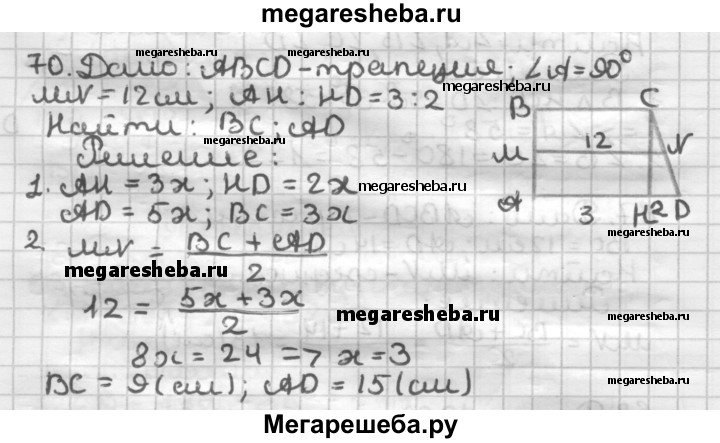 megaresheba.ru
70. Дано: ABCD - трапеция; ∠A = 90°
megaresheba.ru megaresheba.ru
MN = 12 см; AH : HD = 3 : 2
megaresheba.ru
Найти: BC; AD
Решение:
1. AH = 3x; HD = 2x
megaresheba.ru
AD = 5x; BC = 3x
2. MN = BC + AD / 2
megaresheba.ru
12 = 5x + 3x / 2
megaresheba.ru
8x = 24 => x = 3
BC = 9 (см); AD = 15 (см)
B C
12
M N
A 3 H 2 D
megaresheba.ru
megaresheba.ru
megaresheba.ru
Мегарешеба.ру